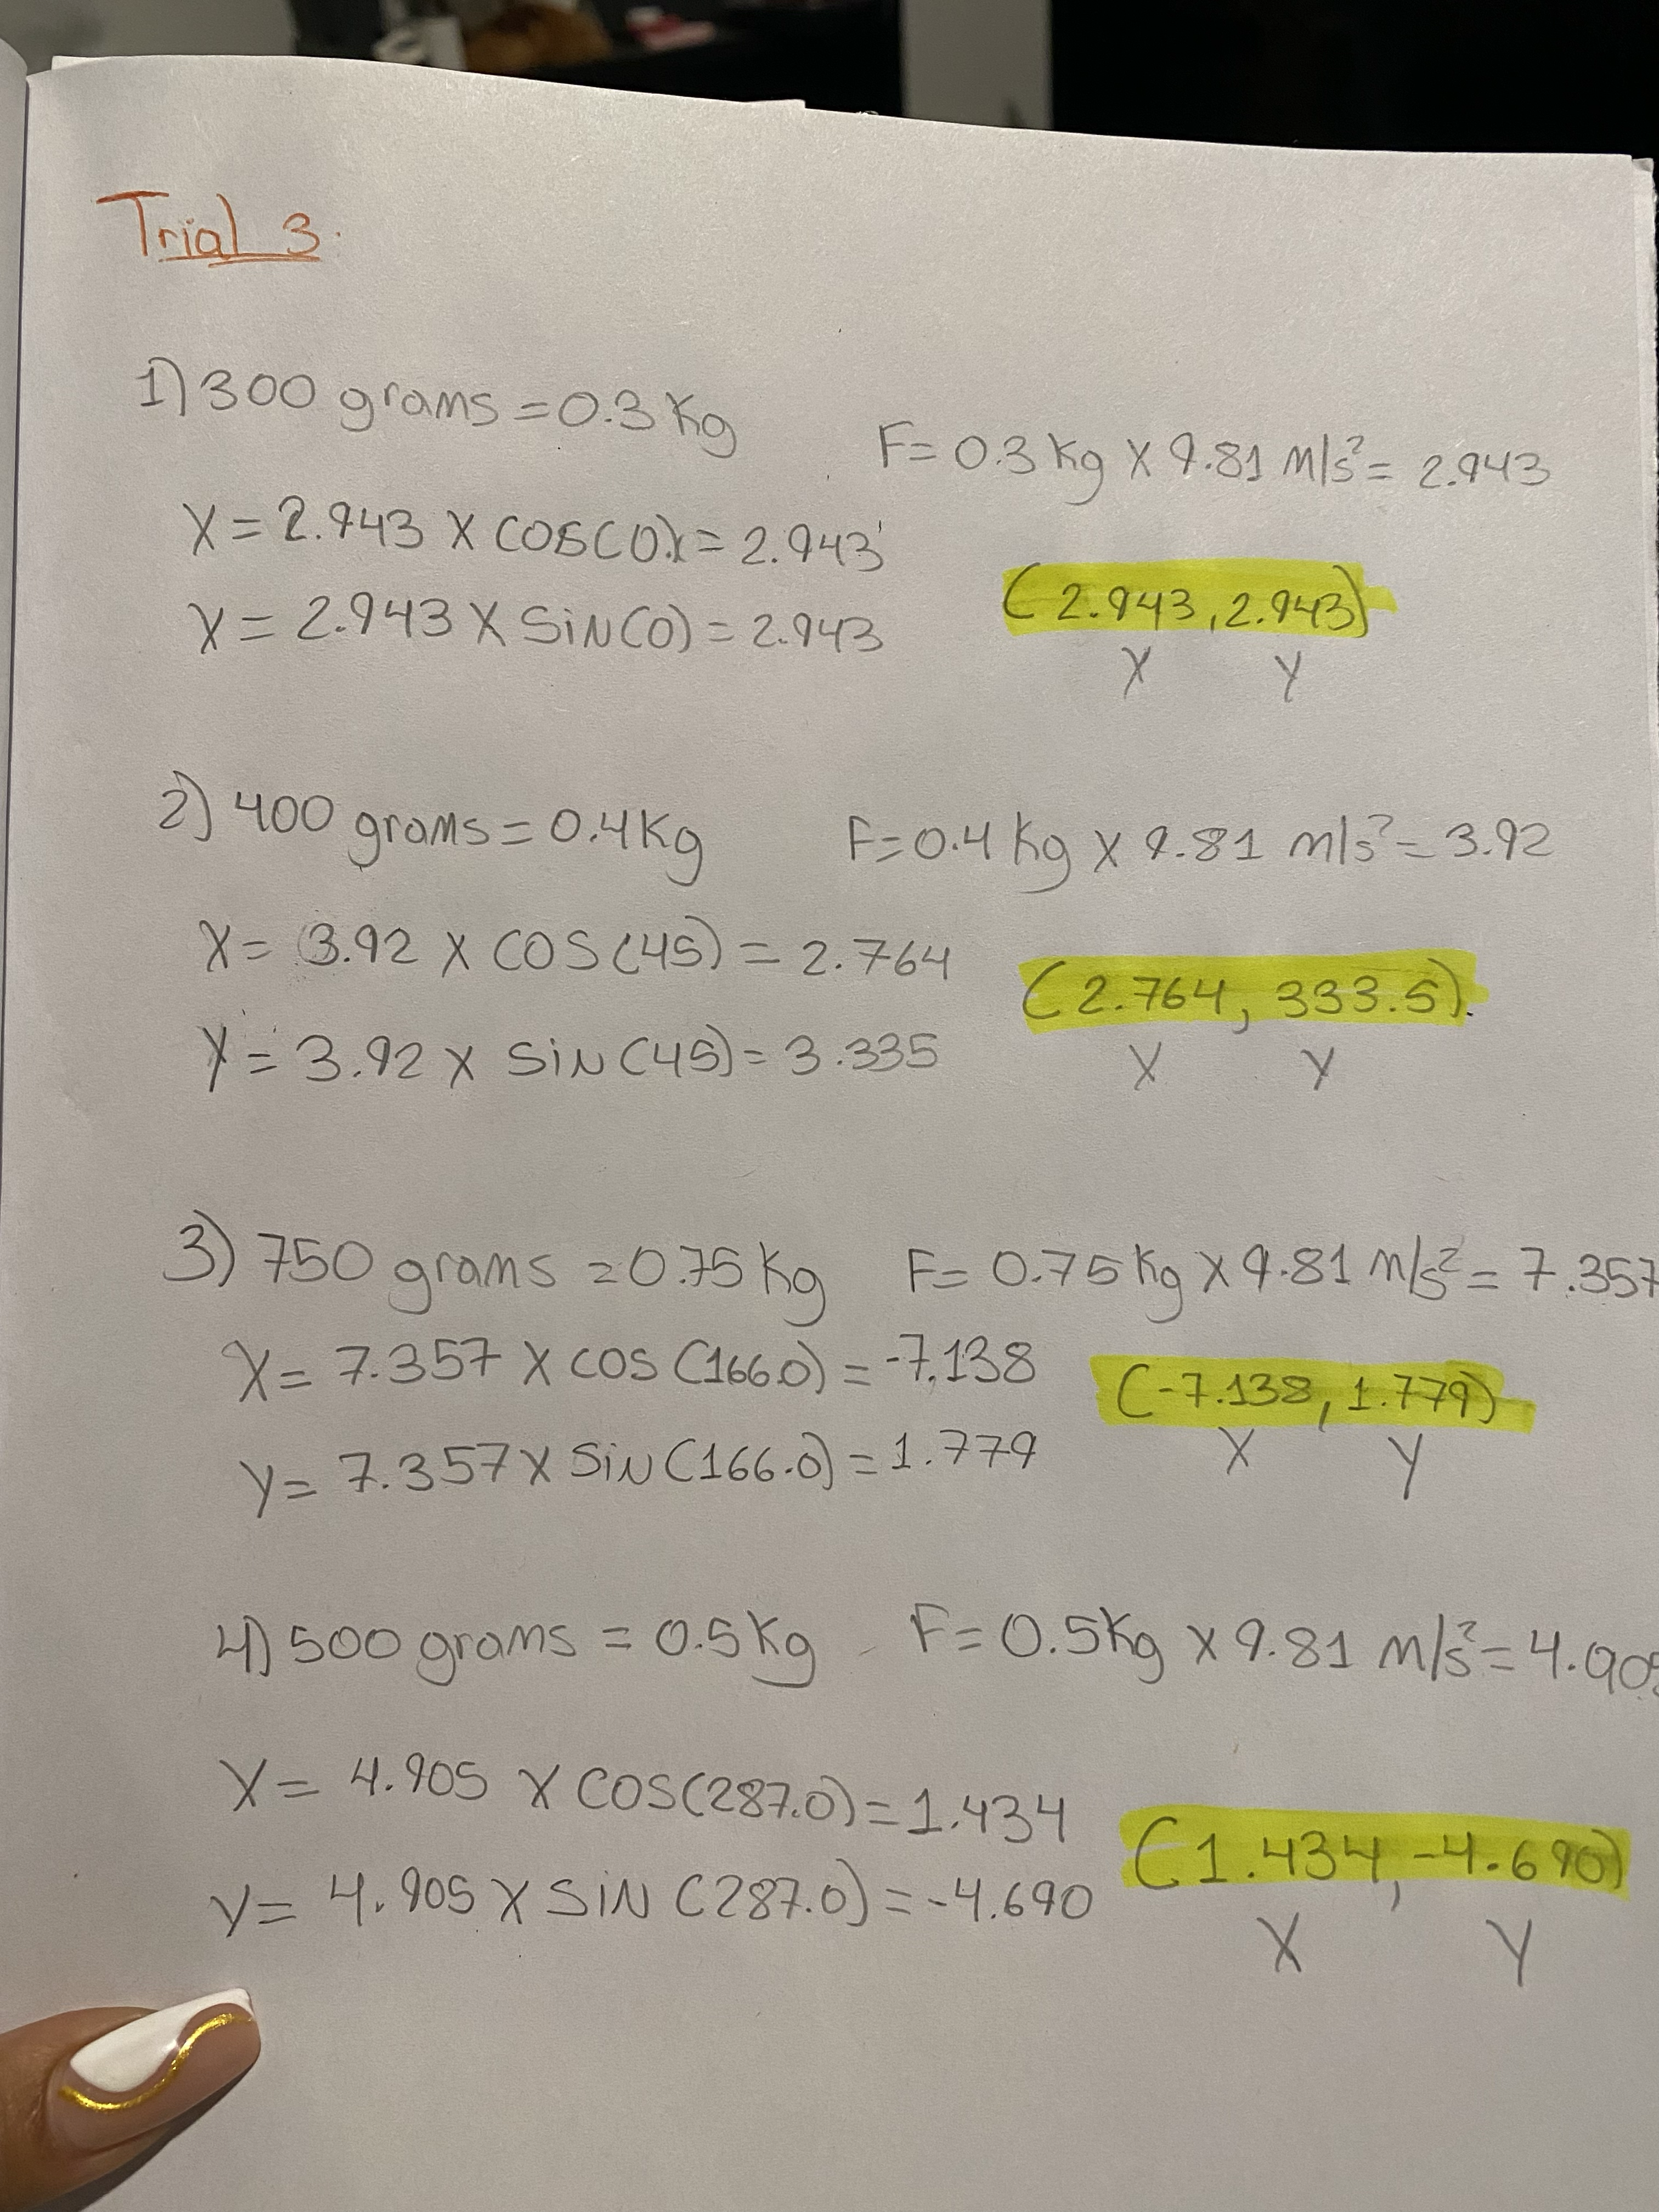 Trial 3.
1) 300 grams = 0.3 Kg
F = 0.3 Kg X 9.81 m/s² = 2.943
X = 2.943 X COS(0) = 2.943
Y = 2.943 X SiN(0) = 2.943
(2.943, 2.943)
X Y
2) 400 grams = 0.4 Kg
F = 0.4 Kg X 9.81 m/s² = 3.92
X = 3.92 X COS(45) = 2.764
Y = 3.92 X SiN(45) = 3.335
(2.764, 333.5)
X Y
3) 750 grams = 0.75 Kg F = 0.75 Kg X 9.81 m/s² = 7.357
X = 7.357 X COS (166.0) = -7.138
Y = 7.357 X SiN (166.0) = 1.779
(-7.138, 1.779)
X Y
4) 500 grams = 0.5 Kg F = 0.5 Kg X 9.81 m/s² = 4.905
X = 4.905 X COS(287.0) = 1.434
Y = 4.905 X SiN (287.0) = -4.690
(1.434, -4.690)
X Y